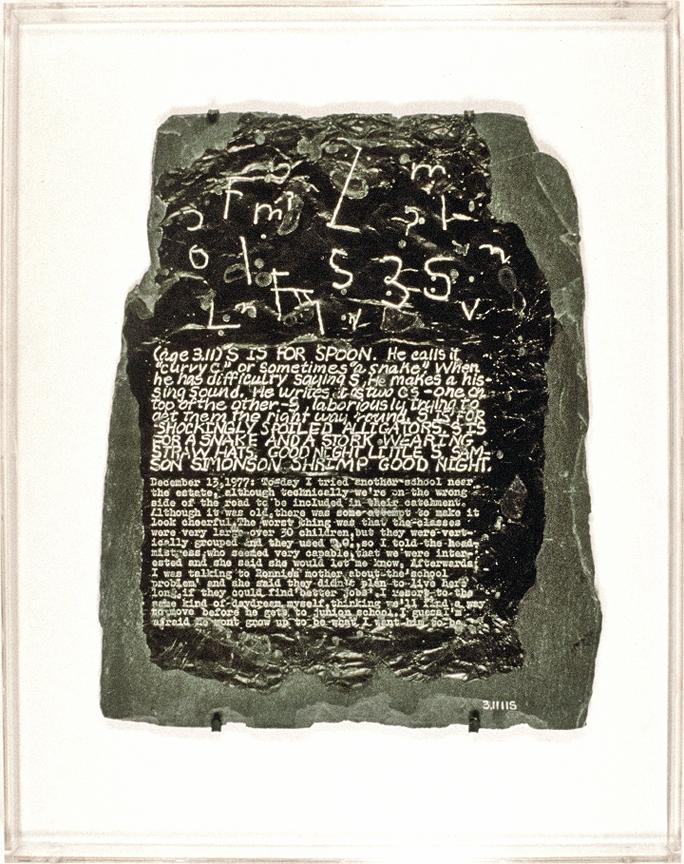 F m L m
o l S 3 S n
L F v
(age 3.11) S IS FOR SPOON. He calls it
"curvy C" or sometimes "a snake" When
he has difficulty saying S, He makes a his-
sing sound. He writes it as two cs - one on
top of the other - S, laboriously trying to
get them the right way round. S IS FOR
SHOCKINGLY SPOILED ALLIGATORS. S IS
FOR A SNAKE AND A STORK WEARING
STRAW HATS. GOOD NIGHT LITTLE S. SAM-
SON SIMONSON SHRIMP GOOD NIGHT.
December 13,1977: To-day I tried another school near
the estate, although technically we're on the wrong
side of the road to be included in their catchment.
Although it was old, there was some attempt to make it
look cheerful. The worst thing was that the classes
were very large over 30 children, but they were vert-
ically grouped and they used so I told the head-
mistress, who seemed very capable, that we were inter-
ested and she said she would let me know. Afterwards
I was talking to Ronnie's mother about the school
problem and she said they didn't plan to live here
long, if they could find better jobs. I resort to the
same kind of daydream myself, thinking we'll find a way
to move before he gets to junior school. I guess I'm
afraid he wont grow up to be what I want him to be
3.1111S